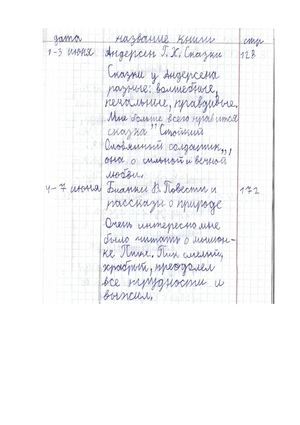 дата название книги стр
1-3 июня Андерсен Г. Х. Сказки 128
Сказки у Андерсена
разные: волшебные,
печальные, правдивые.
Мне больше всего нравится
сказка "Стойкий
Оловянный солдатик",
она о сильной и вечной
любви.
4-7 июня Бианки В. Повести и 172
рассказы о природе
Очень интересно мне
было читать о мышон-
ке Пике. Пик смелый,
храбрый, преодолел
все трудности и
выжил.